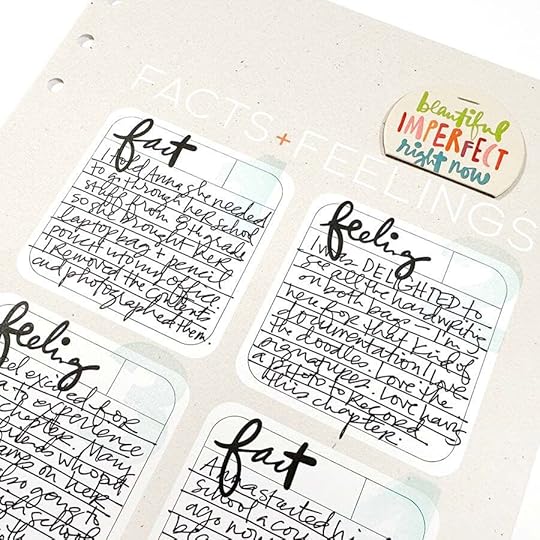 FACTS + FEELINGS
beautiful
IMPERFECT
right now
fact
I told Anna she needed
to go through her school
stuff from 8th grade
so she brought her
laptop bag + pencil
pouch into my office.
I removed the contents
and photographed them.
feeling
I was DELIGHTED to
see all the handwriting
on both bags — I'm
here for that kind of
documentation. I love
the doodles. Love the
signatures. Love having
a photo to record
this chapter.
feeling
excited for
experience
chapter. Many
friends who
on her
also going to
high school
fact
Anna started
school a
ago now